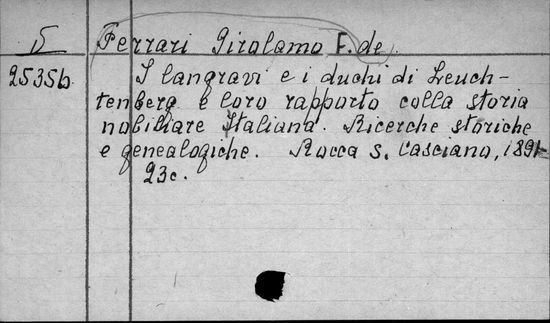 5 Ferrari Girolamo F. de.
25356 I langravi e i duchi di Leuch-
tenberg e loro rapporto colla storia
nobiliare Italiana. Ricerche storiche
e genealogiche. Rocca S. Casciano, 1891
23c.